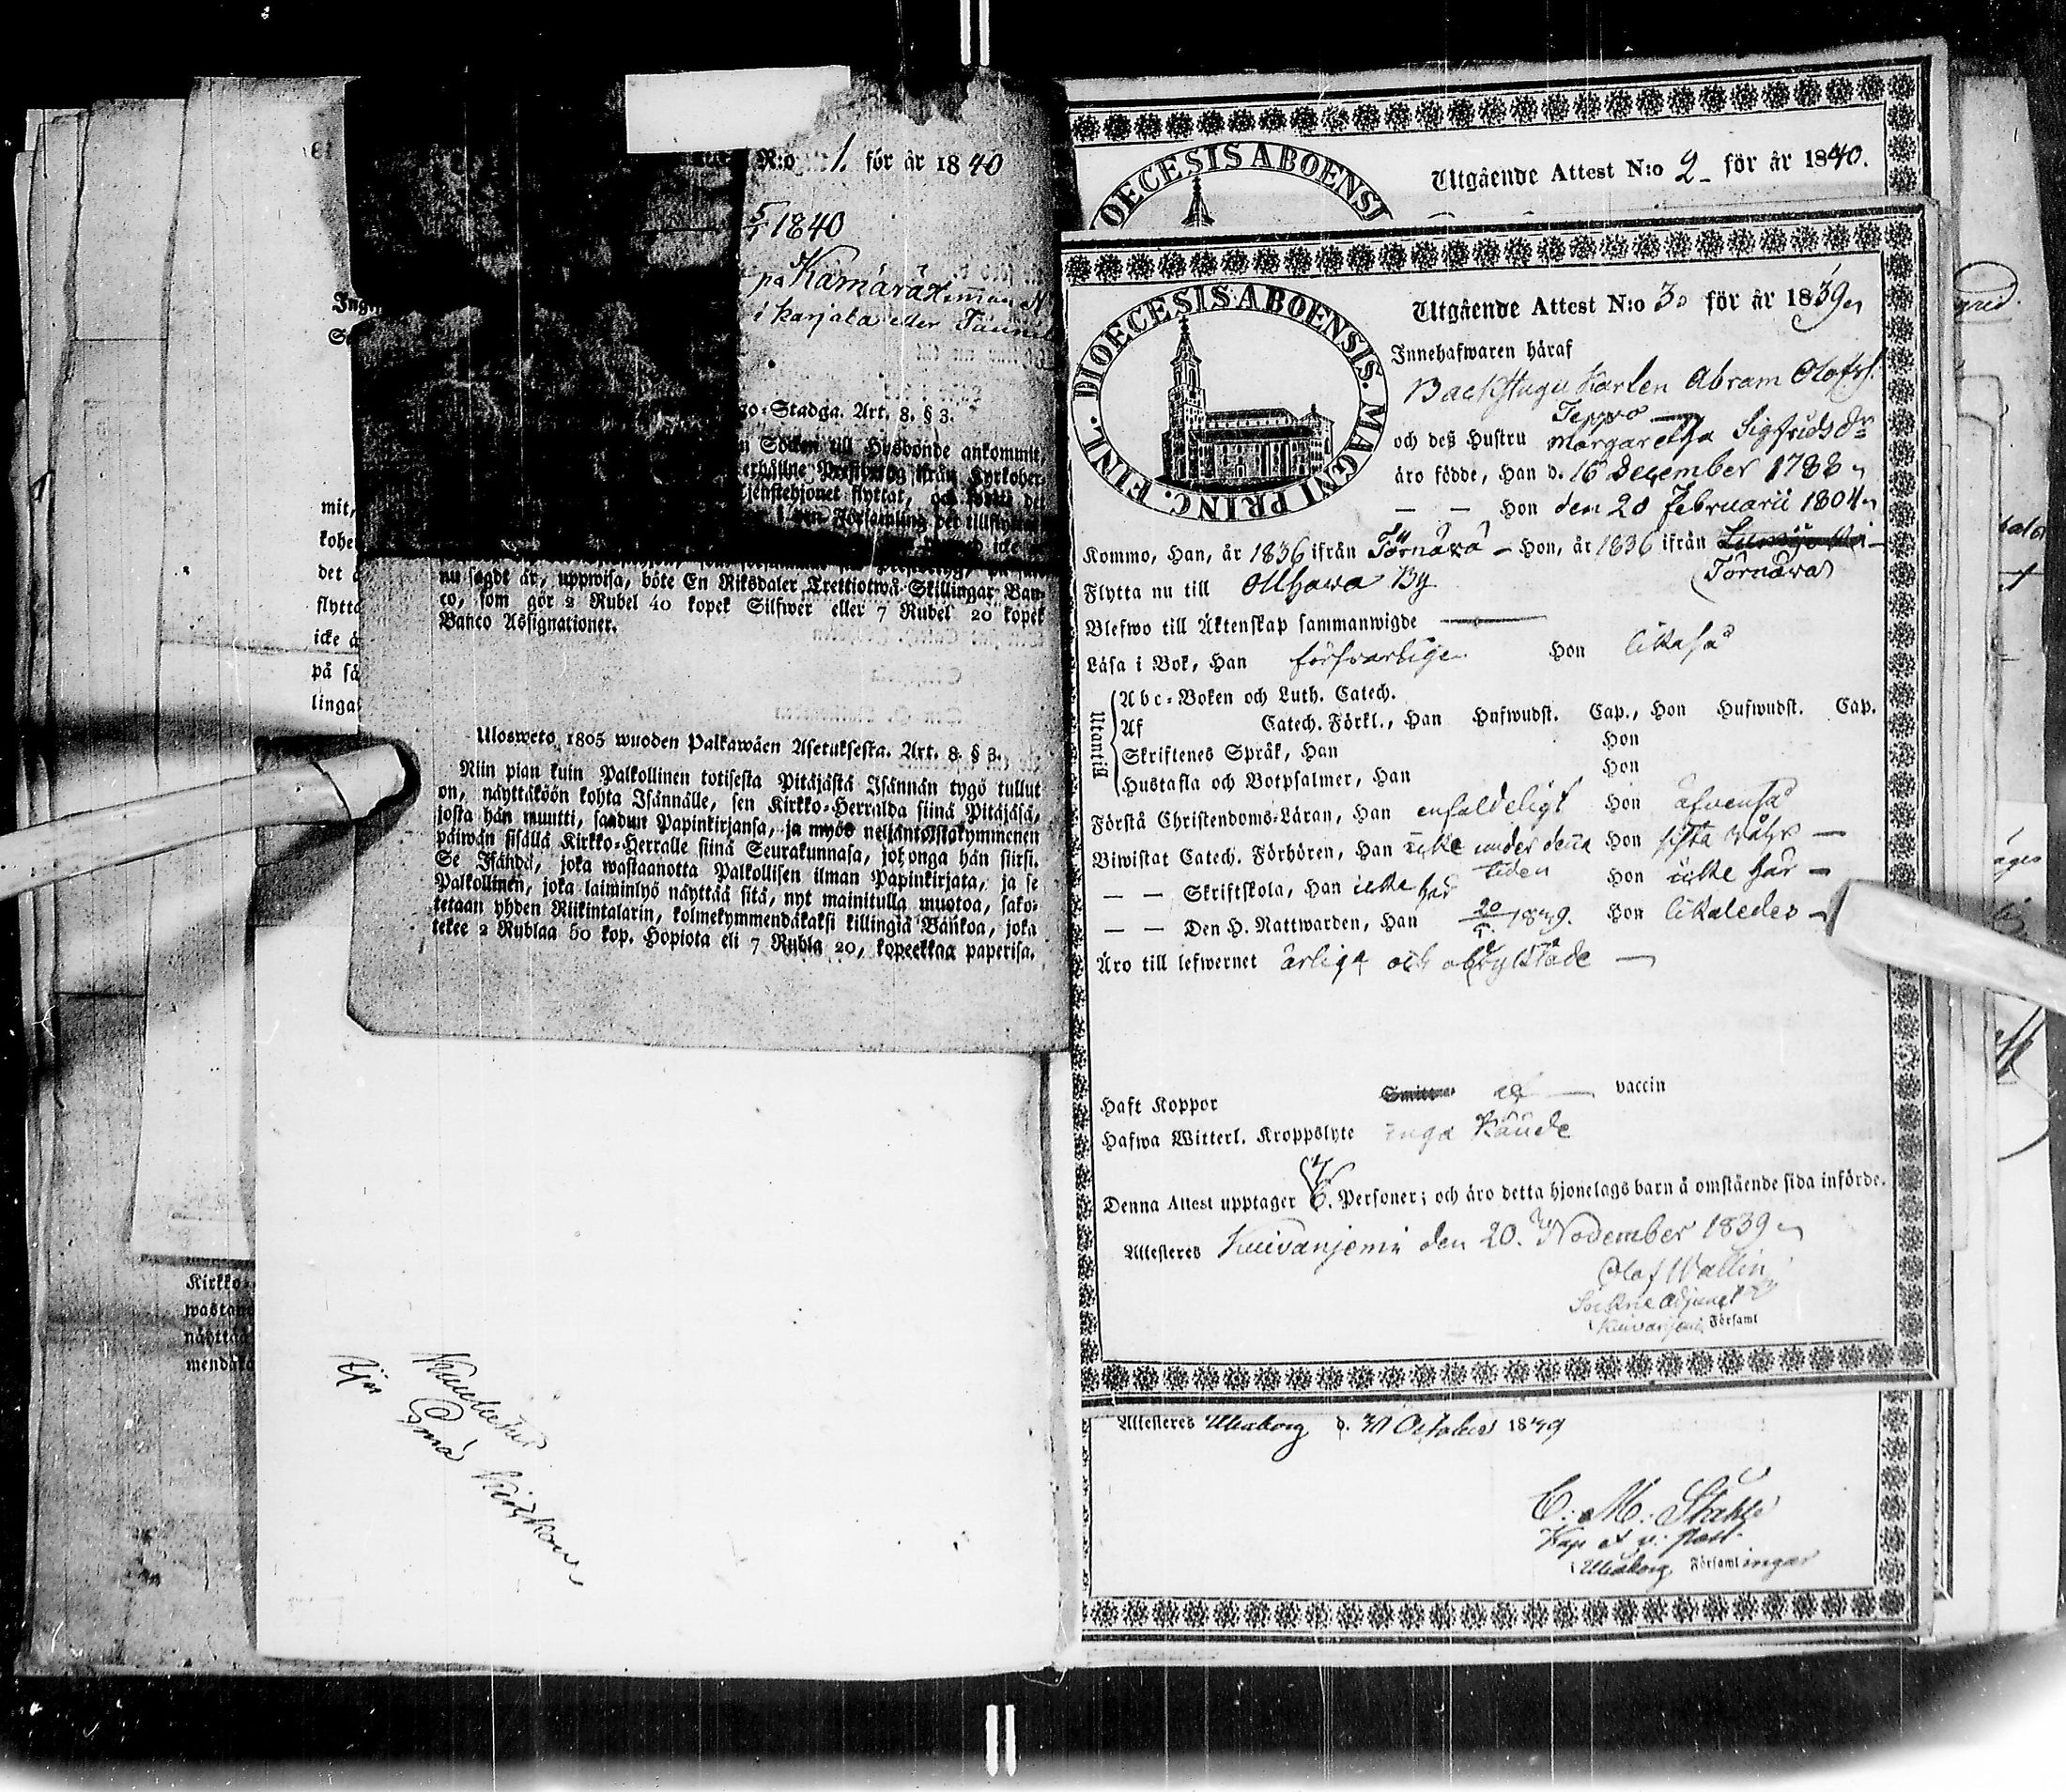 N:o 1. för år 1840
5/1 1840
på Kämärä Hemman N
i Karjala eller Tännilä
go-Stadga. Art. 8. § 3.
n Socken till Husbonde ankommit,
erhållne Prestbetyg ifrån Kyrkoher-
jenstehjonet flyttat, och inom det
nu sagdt är, uppwisa, böte En Riksdaler Trettiotwå Skillingar Ban-
co, som gör 2 Rubel 40 kopek Silfwer eller 7 Rubel 20 kopek
Banco Assignationer.
Ulosweto 1805 wuoden Palkawäen Asetuksesta. Art. 8. § 3.
Niin pian kuin Palkollinen toisesta Pitäjästä Isännän tygö tullut
on, näyttäköön kohta Isännälle, sen Kirkko-Herralda siinä Pitäjäsä,
josta hän muutti, saadun Papinkirjansa, ja myös neljäntoistakymmenen
päiwän sisällä Kirkko-Herralle siinä Seurakunnasa, johonga hän siirsi.
Se Isändä, joka wastaanotta Palkollisen ilman Papinkirjata, ja se
Palkollinen, joka laiminlyö näyttää sitä, nyt mainitulla muotoa, sako-
tetaan yhden Riikintalarin, kolmekymmendäkaksi killingiä Bankoa, joka
tekee 2 Rublaa 50 kop. Hopiota eli 7 Rubla 20, kopeekkaa paperisa.
mit,
kohe
det
flytta
icke
på så
linga
Kirkko-
wastano
näyttää
mendäka
Små Kirkon
DIOECESIS ABOENSI
Utgående Attest N:o 2 för år 1840.
FINL. DIOECESIS ABOENSIS. MAGNI PRINC.
Utgående Attest N:o 30 för år 1839
Innehafwaren häraf
Backstugu Karlen Abram Olofss.
Teppo
och deß Hustru Margaretha Sigfridsdr
äro födde, Han d. 16 December 1788
— — Hon den 20 Februarii 1804
Kommo, Han, år 1836 ifrån Törnävä — Hon, år 1836 ifrån
(Törnävä)
Flytta nu till Olhava By
Blefwo till Äktenskap sammanwigde —
Läsa i Bok, Han försvarligen Hon likaså
Utantill
Abc-Boken och Luth. Catech.
Af Catech. Förkl., Han Hufwudst. Cap., Hon Hufwudst. Cap.
Skriftenes Språk, Han Hon
Hustafla och Botpsalmer, Han Hon
Förstå Christendoms-Läran, Han enfaldeligt Hon äfvenså
Biwistat Catech. Förhören, Han icke under denna Hon sista
tiden
— — Skriftskola, Han icke här Hon icke här —
— — Den H. Nattwarden, Han 1839. Hon likaledes —
Äro till lefwernet ärliga och obryktade —
Haft Koppor af — vaccin
Hafwa Witterl. Kroppslyte inga kände
Denna Attest upptager 6. Personer; och äro detta hjonelags barn å omstående sida införde.
Attesteres Kuivaniemi den 20. November 1839
Olof Wallin
Sockne Adjunct
i Kuivaniemi Församl
Attesteres Uleåborg d. 30 October 1839
C: M: Ståhle
Kap et v: past.
i Uleåborg Församlingar